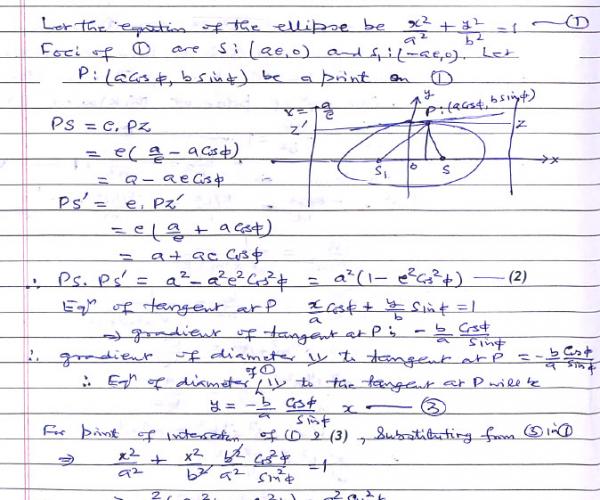 Let the equation of the ellipse be x²/a² + y²/b² = 1 — ①
Foci of ① are S: (ae,0) and S₁: (-ae,0). Let
P: (a Cos ϕ, b Sin ϕ) be a point on ①
x = a/e
y
P: (a Cos ϕ, b Sin ϕ)
z'
z
S₁
O
S
x
PS = e. PZ
= e( a/e - a Cos ϕ)
= a - ae Cos ϕ
PS' = e. PZ'
= e( a/e + a Cos ϕ)
= a + ae Cos ϕ
∴ PS. PS' = a² - a²e² Cos²ϕ = a²(1 - e² Cos²ϕ) — (2)
Eqⁿ of tangent at P x/a Cos ϕ + y/b Sin ϕ = 1
⇒ gradient of tangent at P is - b/a Cos ϕ/Sin ϕ
∴ gradient of diameter || to tangent at P = - b/a Cos ϕ/Sin ϕ
∴ Eqⁿ of diameter of ① || to the tangent at P will be
y = - b/a Cos ϕ/Sin ϕ x — ③
For point of intersection of ① & (3), Substituting from ③ in ①
⇒ x²/a² + x²/b² b²/a² Cos²ϕ/Sin²ϕ = 1